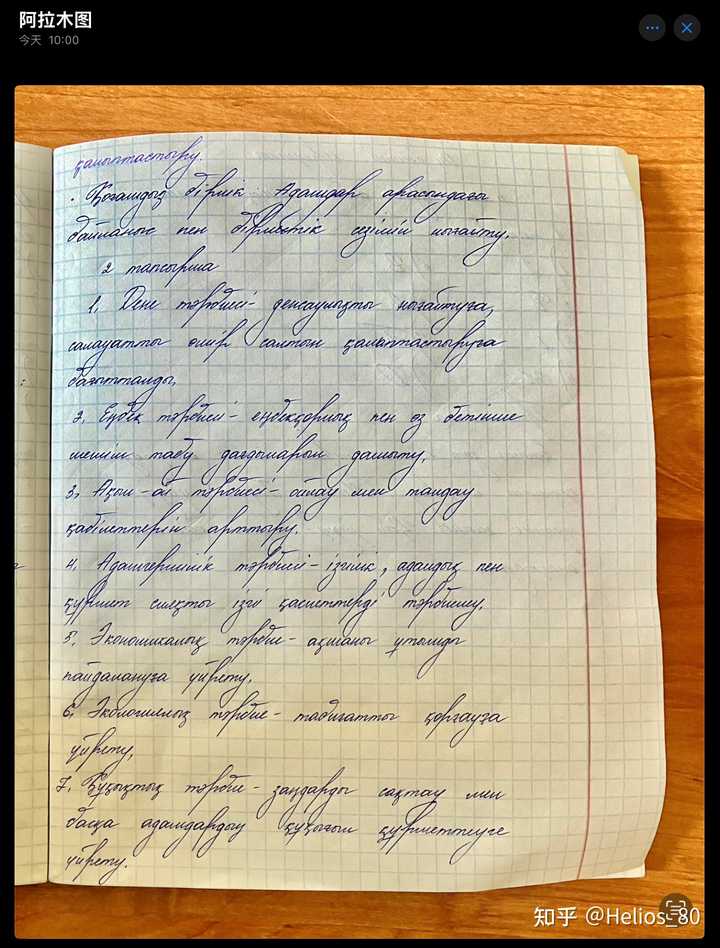 阿拉木图
今天 10:00
қалыптастыру.
· Қоғамдық бірлік : Адамдар арасындағы
байланыс пен бірлестік сезімін нығайту.
2 тапсырма
1. Дене тәрбиесі - денсаулықты нығайтуға,
салауатты өмір салтын қалыптастыруға
бағытталды.
2. Еңбек тәрбиесі - еңбекқорлық пен өз бетінше
шешім табу дағдыларын дамыту.
3. Ақыл-ой тәрбиесі - ойлау мен талдау
қабілеттерін арттыру.
4. Адамгершілік тәрбиесі - ізгілік, адалдық пен
құрмет сияқты ізгі қасиеттерді тәрбиелеу.
5. Экономикалық тәрбие - ақшаны ұтымды
пайдалануға үйрету.
6. Экологиялық тәрбие - табиғатты қорғауға
үйрету.
7. Құқықтық тәрбие - заңдарды сақтау мен
басқа адамдардың құқығын құрметтеуге
үйрету.
知乎 @Helios_80